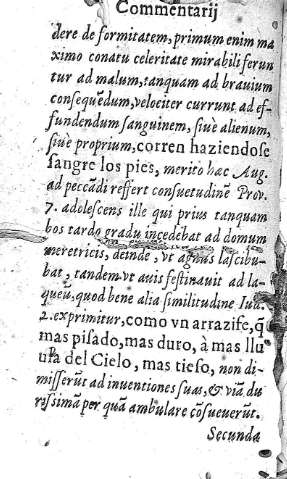 Commentarij
dere de formitatem, primum enim ma
ximo conatu celeritate mirabili ferun
tur ad malum, tanquam ad brauium
consequẽdum, velociter currunt ad ef-
fundendum sanguinem, siuè alienum,
siuè proprium, corren haziendose
sangre los pies, merito hac Aug.
ad peccãdi reffert consuetudinẽ Prov.
7. adolescens ille qui prius tanquam
bos tardo gradu incedebat ad domum
meretricis, deinde, vt agnus lascibu-
bat, tandem vt auis festinauit ad la-
queũ, quod bene alia similitudine Iud.
2. exprimitur, como vn arrazife, q̃
mas pisado, mas duro, à mas llu
uia del Cielo, mas tieso, non di-
misserũt ad inuentiones suas, & viã du
rissimã per quã ambulare cõsueuerũt.
Secunda